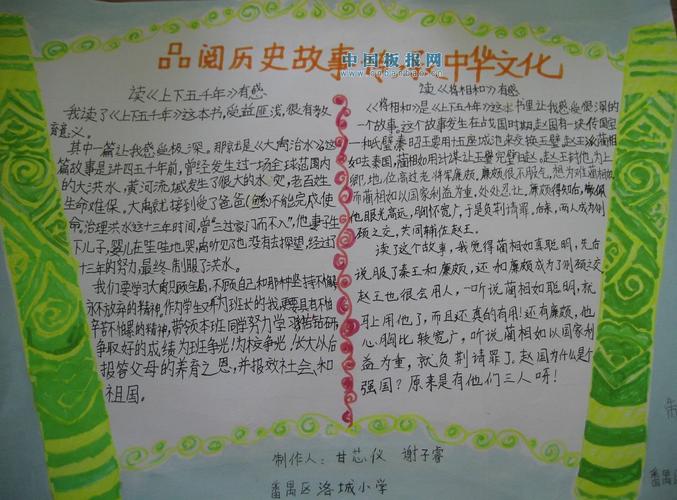 品阅历史故事 传承中华文化
中国板报网
www.banbao.cn
读《上下五千年》有感
我读了《上下五千年》这本书,受益匪浅,很有教
育意义。
其中一篇让我感受极深。那就是《大禹治水》这
篇故事是讲四五千年前,曾经发生过一场全球范围内
的大洪水,黄河流域发生了很大的水灾,老百姓
生命难保。大禹就接到受了爸爸 不能完成使
命,治理洪水这十三年时间,曾"三过家门而不入",他妻子生
下儿子,婴儿在哇哇地哭,禹听见了也没有去探望,经过了
十三年的努力,最终制服了洪水。
我们要学习大禹顾全局,不顾自己和那种坚持不懈
永不放弃的精神。作为学生又作为班长的我更要具有不怕
辛苦不怕累的精神,带领本班同学努力学习 钻研
争取好的成绩为班争光!为校争光!长大以后
报答父母的养育之恩,并报效社会和
祖国。
读《将相和》有感
《将相和》是《上下五千年》这本书里让我感受很深的
一个故事。这个故事发生在战国时期,赵国有一块传国宝
一和氏璧,秦昭王要用十五座城池来交换玉璧,赵王派蔺相
如去秦国,蔺相如用计谋让玉璧完璧归赵。赵王封他为上
卿,地位高过老将军廉颇,廉颇很不服气,想为难蔺相如
而蔺相如以国家利益为重,处处忍让。廉颇得知后,
他眼光高远,胸怀宽广,于是负荆请罪。后来,两人成为刎
颈之交,共同辅佐赵王。
读了这个故事,我觉得蔺相如真聪明,先后
说服了秦王和廉颇,还和廉颇成为了刎颈之交
赵王也很会用人,一听说蔺相如聪明,就
马上用他了,而且还真的有用!还有廉颇,他
心胸比较宽广,听说蔺相如以国家利
益为重,就负荆请罪了。赵国为什么是个
强国?原来是有他们三人呀!
制作人:甘芯仪 谢子睿
番禺区洛城小学
番禺